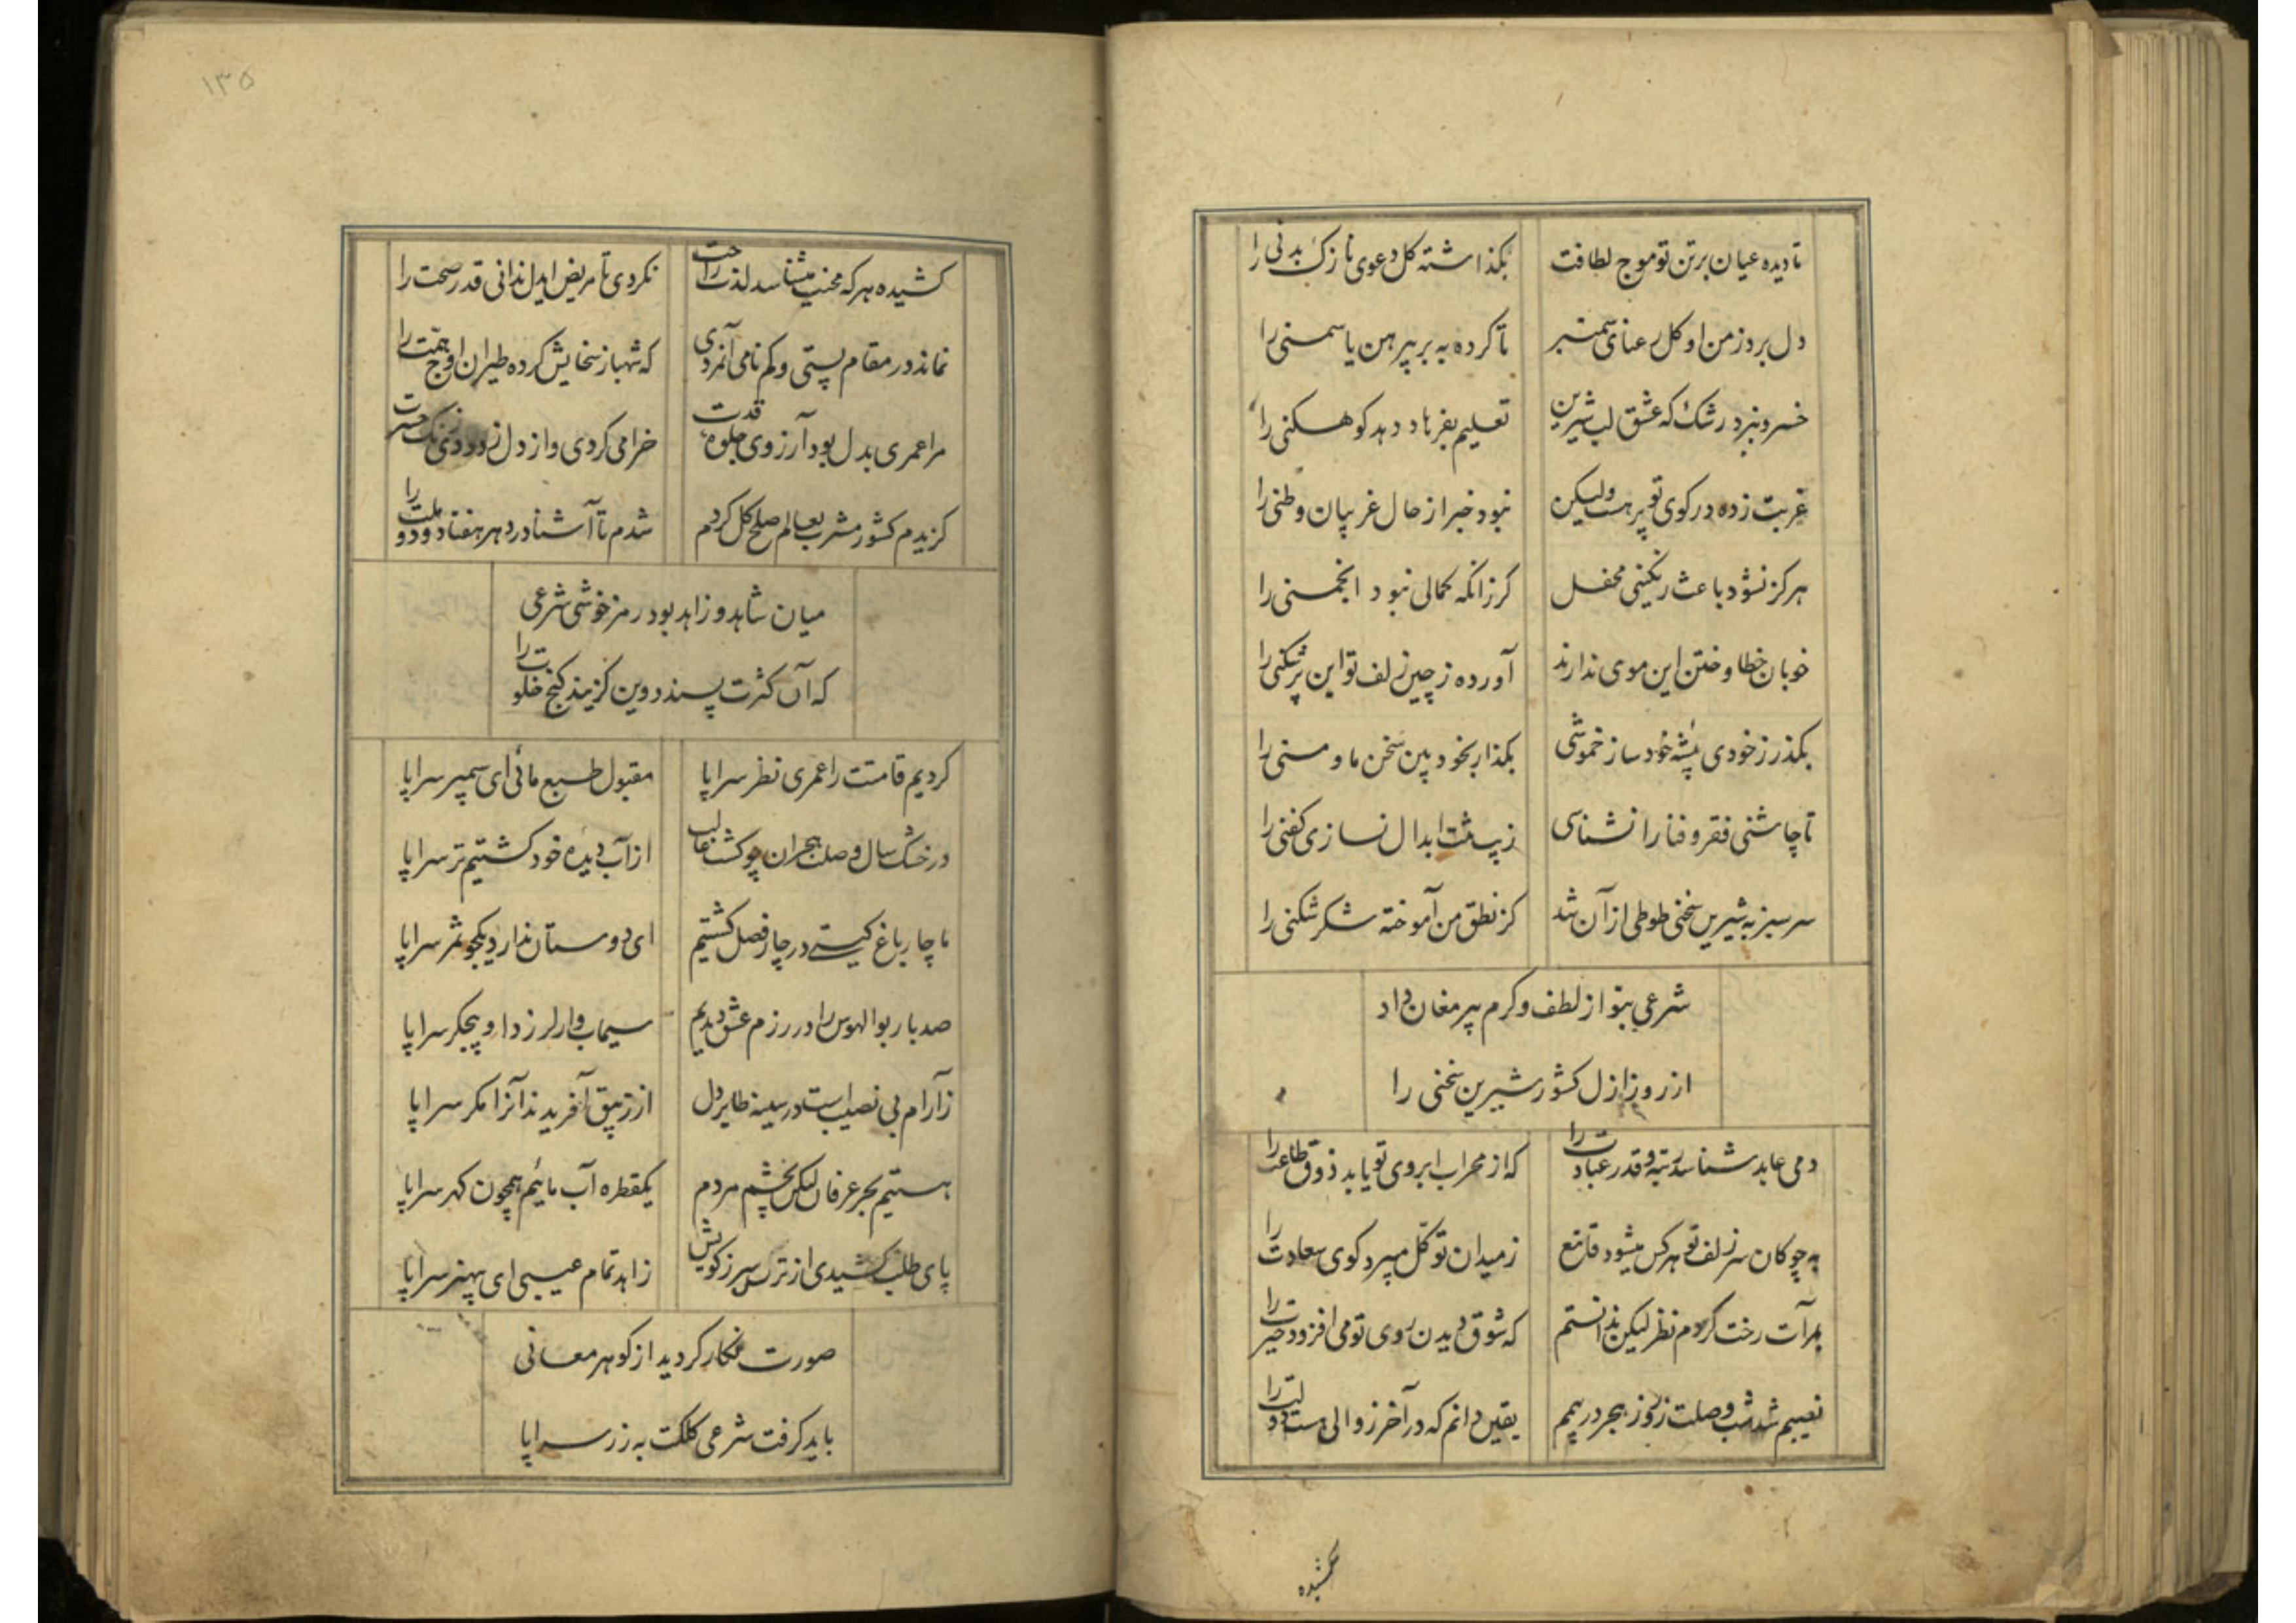 تا دیده عیان بر تن تو موج لطافت بکذاشته کل دعوی نازک بدنی را
دل برد ز من او کل رعنای سمنبر تا کرده به بر پیرهن یاسمنی را
خسرو نبرد رشک که عشق لب شیرین تعلیم بفرهاد دهد کوهکنی را
غربت زده در کوی تو پر هست ولیکن نبود خبر از حال غریبان وطنی را
هرکز نشود باعث رنکینی محفل کر زانکه کمالی نبود انجمنی را
خوبان خطا و ختن این موی ندارند آورده ز چین زلف تو این پرشکنی را
بکذر ز خودی پیشهٔ خود ساز خموشی بکذار بخود بین سخن ما و منی را
تا چاشنی فقر و فنا را نشناسی زیب تن ابدال نسازی کفنی را
سرسبز به شیرین سخنی طوطی از آن شد کز نطق من آموخته شکر شکنی را
شرعی بتو از لطف و کرم پیر مغان داد
از روز ازل کشور شیرین سخنی را
دمی عابد شناسد رتبه و قدر عبادت را که از محراب ابروی تو یابد ذوق طاعت را
به چوکان سر زلف تو هر کس میشود قانع ز میدان توکل میبرد کوی سعادت را
بمرآت رخت کردم نظر لیکن ندانستم که شوق دیدن روی تو می افزود حیرت را
نصیبم شد شب وصلت ز روز هجر در بیمم یقین دانم که در آخر زوالی هست دولت را
کشیده
۱۳۵
کشیده هر که محنت میشناسد لذت راحت نکردی تا مریض ایدل ندانی قدر صحت را
نماند در مقام پستی و کم نامی آنمردی که شهباز سخایش کرده طیران اوج همت را
مرا عمری بدل بود آرزوی جلوهٔ قدت خرامی کردی و از دل زدودی زنک حسرت
کزیدم کشور مشرب بعالم صلح کل کردم شدم تا آشنا در دهر هفتاد و دو ملت را
میان شاهد و زاهد بود رمز خوشی شرعی
که آن کثرت پسندد وین کزیند کنج خلوت را
کردیم قامتت را عمری نظر سراپا مقبول طبع مائی ای سیمبر سراپا
در خشک سال وصلت هجران چو کشت غالب از آب دیدهٔ خود کشتیم تر سراپا
ما چار باغ کیتی در چار فصل کشتیم ای دوستان ندارد یکجو ثمر سراپا
صد بار بوالهوس را در رزم عشق دیدیم سیماب وار لرزد او بیجکر سراپا
ز آرام بی نصیب است در سینه طایر دل از زیبق آفریدند آنرا مکر سراپا
هستیم بحر عرفان لیکن بچشم مردم یکقطره آب مائیم همچون کهر سراپا
پای طلب کشیدی از ترس سر ز کویش زاهد تمام عیبی ای بیهنر سراپا
صورت نکار کردید از کوهر معانی
باید کرفت شرعی کلکت به زر سراپا